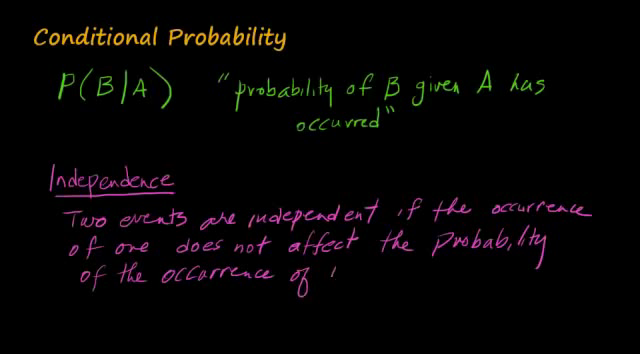 Conditional Probability
P(B/A) "probability of B given A has
occurred"
Independence
Two events are independent if the occurrence
of one does not affect the probability
of the occurrence of